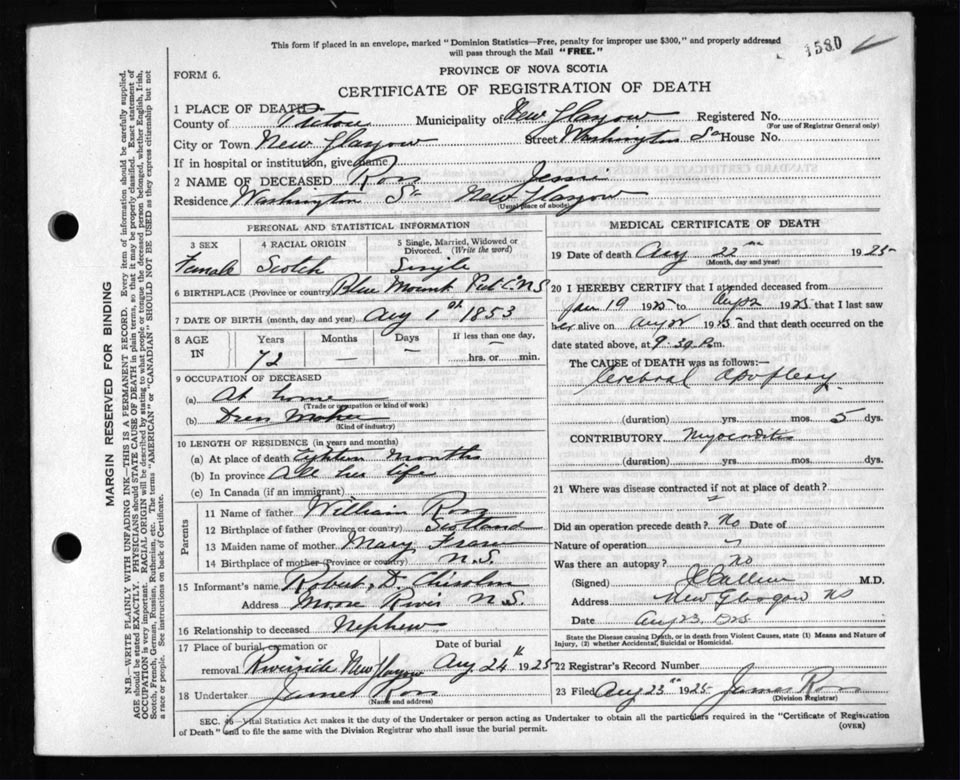 This form if placed in an envelope, marked "Dominion Statistics—Free, penalty for improper use $300," and properly addressed
will pass through the Mail "FREE."
1580
FORM 6.
PROVINCE OF NOVA SCOTIA
CERTIFICATE OF REGISTRATION OF DEATH
1 PLACE OF DEATH
County of Pictou Municipality of New Glasgow Registered No.
(For use of Registrar General only)
City or Town New Glasgow Street Washington St House No.
If in hospital or institution, give name)
2 NAME OF DECEASED Ross Jessie
Residence Washington St New Glasgow
(Usual place of abode)
PERSONAL AND STATISTICAL INFORMATION
3 SEX 4 RACIAL ORIGIN 5 Single, Married, Widowed or Divorced. (Write the word)
Female Scotch Single
6 BIRTHPLACE (Province or country) Blue Mount Pict. Co N.S
7 DATE OF BIRTH (month, day and year) Aug 1st 1853
8 AGE IN Years Months Days If less than one day,
72 — — hrs. or min.
9 OCCUPATION OF DECEASED
(a) At home
(Trade or occupation or kind of work)
(b) Dress Maker
(Kind of industry)
10 LENGTH OF RESIDENCE (in years and months)
(a) At place of death Eighteen Months
(b) In province All her life
(c) In Canada (if an immigrant)
Parents
11 Name of father William Ross
12 Birthplace of father (Province or country) Scotland
13 Maiden name of mother Mary Fraser
14 Birthplace of mother (Province or country) N.S.
15 Informant's name Robert D. Chisholm
Address Moose River N.S.
16 Relationship to deceased Nephew
17 Place of burial, cremation or removal Riverside New Glasgow Date of burial Aug 24th 1925
18 Undertaker James Ross
(Name and address)
MEDICAL CERTIFICATE OF DEATH
19 Date of death Aug 22nd 1925
(Month, day and year)
20 I HEREBY CERTIFY that I attended deceased from
19 1925 to Aug 22 1925 that I last saw
her alive on Aug 22 1925 and that death occurred on the
date stated above, at 9.30 P.m.
The CAUSE of DEATH was as follows:—
Cerebral Apoplexy
(duration) yrs. mos. 5 dys.
CONTRIBUTORY Myocarditis
(duration) yrs. mos. dys.
21 Where was disease contracted if not at place of death?
Did an operation precede death? No Date of
Nature of operation
Was there an autopsy? No
(Signed) M.D.
Address New Glasgow NS
Date Aug 23, 1925
State the Disease causing Death, or in death from Violent Causes, state (1) Means and Nature of
Injury, (2) whether Accidental, Suicidal or Homicidal.
22 Registrar's Record Number
23 Filed Aug 23rd 1925 James Ross
(Division Registrar)
SEC. 46—Vital Statistics Act makes it the duty of the Undertaker or person acting as Undertaker to obtain all the particulars required in the "Certificate of Registration
of Death" and to file the same with the Division Registrar who shall issue the burial permit.
(OVER)
MARGIN RESERVED FOR BINDING
N.B.—WRITE PLAINLY WITH UNFADING INK—THIS IS A PERMANENT RECORD. Every item of information should be carefully supplied.
AGE should be stated EXACTLY. PHYSICIANS should STATE CAUSE OF DEATH in plain terms, so that it may be properly classified. Exact statement of
OCCUPATION is very important. RACIAL ORIGIN will be described by stating to what people or tongue the deceased person belonged, whether English, Irish,
Scotch, French, German, Russian, Ruthenian, etc. The terms "AMERICAN" or "CANADIAN" SHOULD NOT BE USED as they express citizenship but not
a race or people. See instructions on back of Certificate.